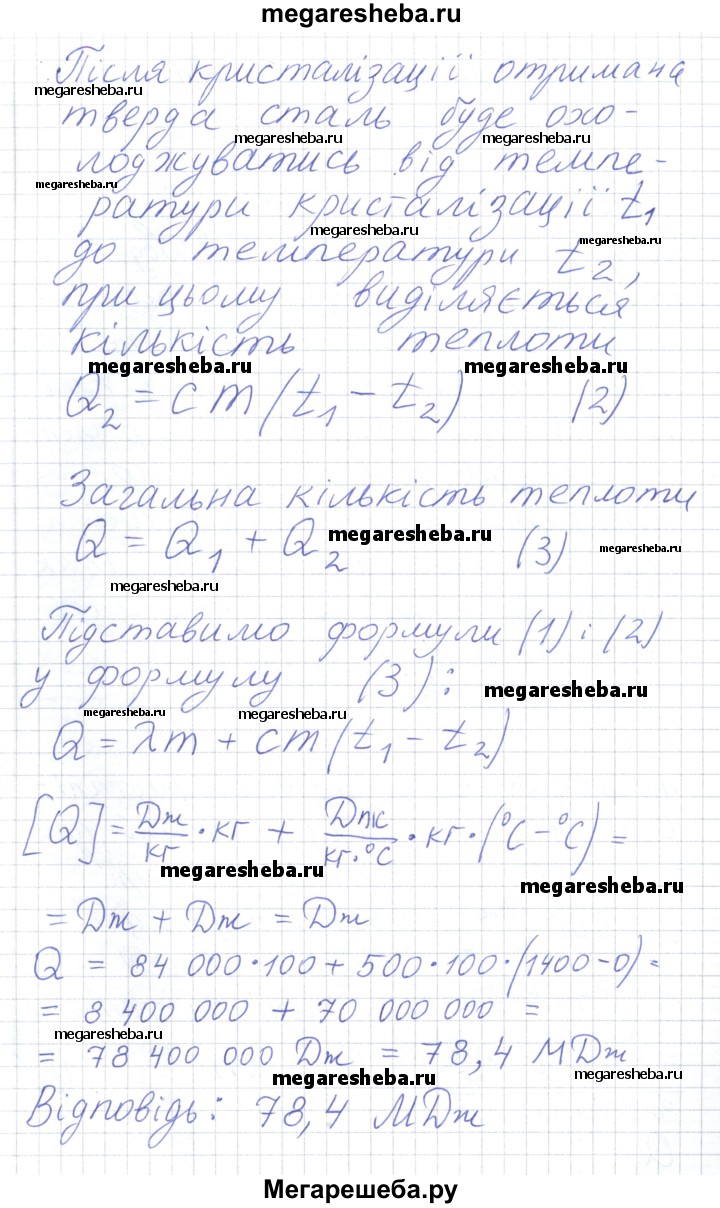 megaresheba.ru
Після кристалізації отримана
megaresheba.ru
тверда сталь буде охо-
megaresheba.ru megaresheba.ru
лоджуватись від темпе-
megaresheba.ru
ратури кристалізації t₁
megaresheba.ru megaresheba.ru
до температури t₂,
при цьому виділяється
кількість теплоти
megaresheba.ru megaresheba.ru
Q₂ = cm(t₁ - t₂) (2)
Загальна кількість теплоти
Q = Q₁ + Q₂ megaresheba.ru (3) megaresheba.ru
megaresheba.ru
Підставимо формули (1) і (2)
у формулу (3): megaresheba.ru
megaresheba.ru megaresheba.ru
Q = λm + cm(t₁ - t₂)
[Q] = Дж/кг · кг + Дж/кг·°C · кг · (°C - °C) =
megaresheba.ru megaresheba.ru
= Дж + Дж = Дж
Q = 84 000·100 + 500·100·(1400-0) =
= 8 400 000 + 70 000 000 =
megaresheba.ru
= 78 400 000 Дж = 78,4 МДж
megaresheba.ru megaresheba.ru
Відповідь: 78,4 МДж
Мегарешеба.ру